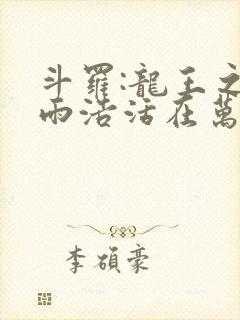 斗羅:龍王之
雨浩活在萬
李碩豪